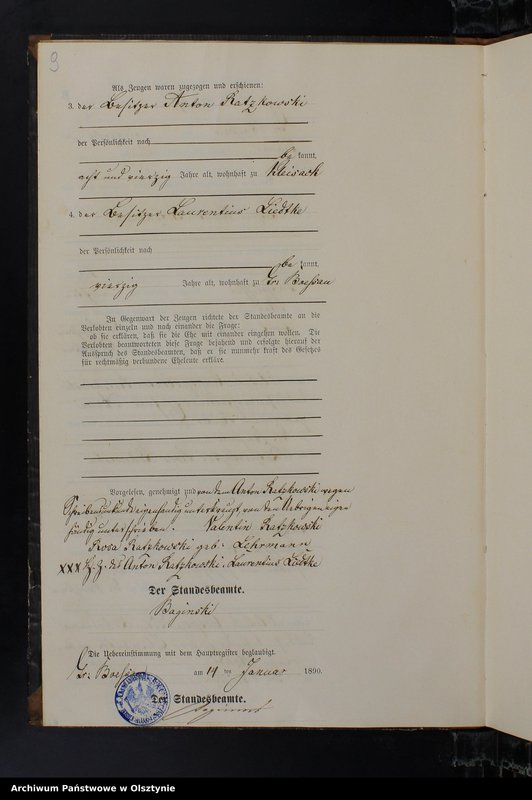 3
Als Zeugen waren zugezogen und erschienen:
3. der Besitzer Anton Ratzkowski
der Persönlichkeit nach
be kannt,
acht und vierzig Jahre alt, wohnhaft zu Kleisack
4. der Besitzer Laurentius Liedtke
der Persönlichkeit nach
be kannt,
vierzig Jahre alt, wohnhaft zu Gr. Boessau
In Gegenwart der Zeugen richtete der Standesbeamte an die
Verlobten einzeln und nach einander die Frage:
ob sie erklären, daß sie die Ehe mit einander eingehen wollen. Die
Verlobten beantworteten diese Frage bejahend und erfolgte hierauf der
Ausspruch des Standesbeamten, daß er sie nunmehr kraft des Gesetzes
für rechtmäßig verbundene Eheleute erkläre.
Vorgelesen, genehmigt und von dem Anton Ratzkowski wegen
Schreibensunkunde eigenhändig unterkreuzt, von den Uebrigen eigen
händig unterschrieben. Valentin Ratzkowski
Rosa Ratzkowski geb. Lehrmann
xxx Hz. des Anton Ratzkowski. Laurentius Liedtke
Der Standesbeamte.
Baginski
Die Uebereinstimmung mit dem Hauptregister beglaubigt.
Gr. Boessau am 14 ten Januar 1890.
Der Standesbeamte.
Baginski
Archiwum Państwowe w Olsztynie